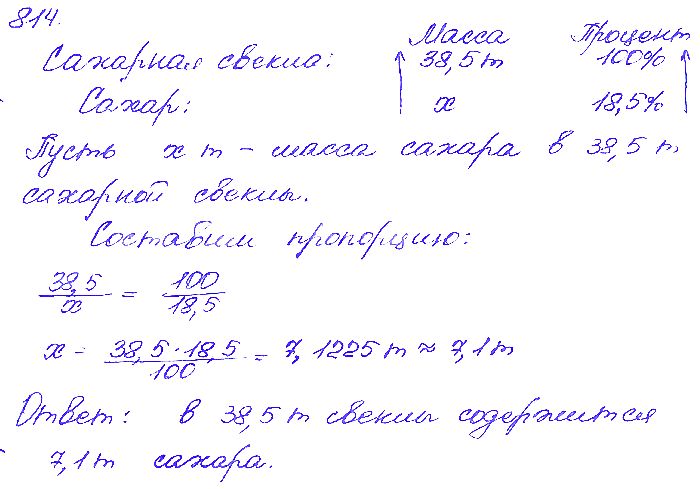 814.
Масса Процент
Сахарная свекла: 38,5 т 100%
Сахар: x 18,5%
Пусть x т – масса сахара в 38,5 т
сахарной свеклы.
Составим пропорцию:
38,5/x = 100/18,5
x = 38,5·18,5/100 = 7,1225 т ≈ 7,1 т
Ответ: в 38,5 т свеклы содержится
7,1 т сахара.